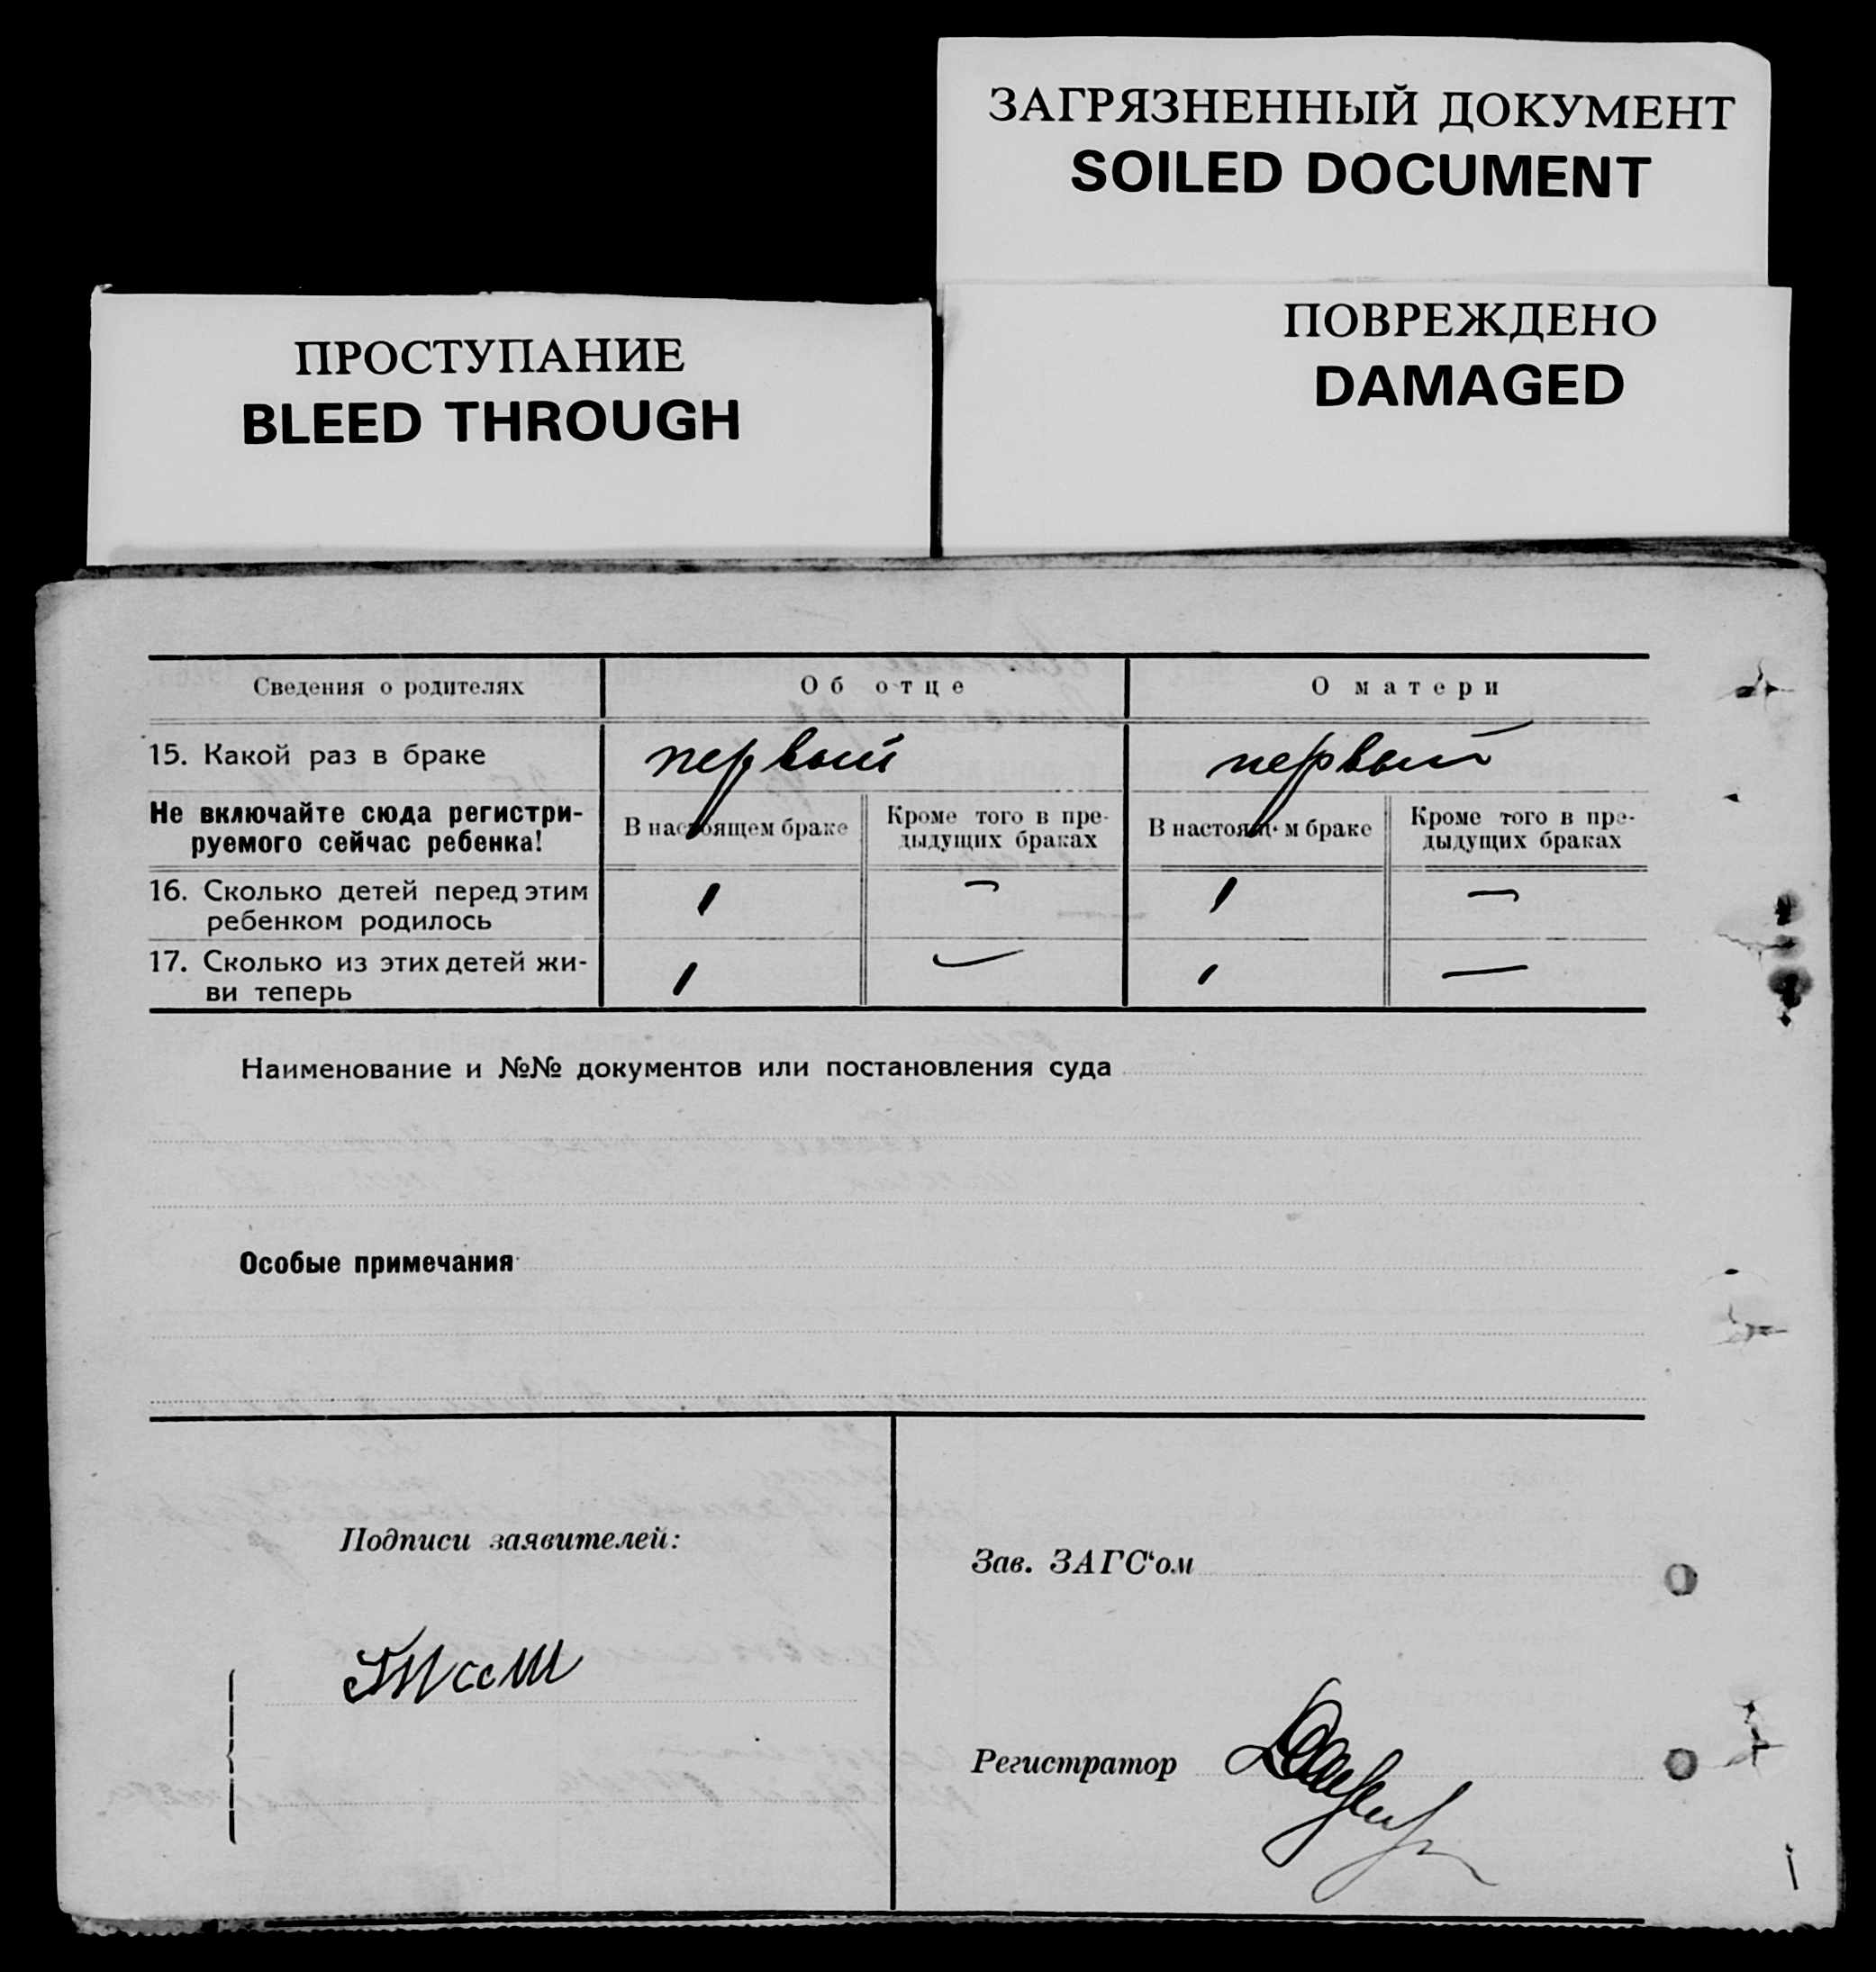 ЗАГРЯЗНЕННЫЙ ДОКУМЕНТ
SOILED DOCUMENT
ПОВРЕЖДЕНО
DAMAGED
ПРОСТУПАНИЕ
BLEED THROUGH
Сведения о родителях Об отце О матери
15. Какой раз в браке первый первый
Не включайте сюда регистри-
руемого сейчас ребенка!
В настоящем браке
Кроме того в пре-
дыдущих браках
В настоящ м браке
Кроме того в пре-
дыдущих браках
16. Сколько детей перед этим
ребенком родилось
1 — 1 —
17. Сколько из этих детей жи-
ви теперь
1 — 1 —
Наименование и №№ документов или постановления суда
Особые примечания
Подписи заявителей:
Зав. ЗАГС‘ом
Регистратор